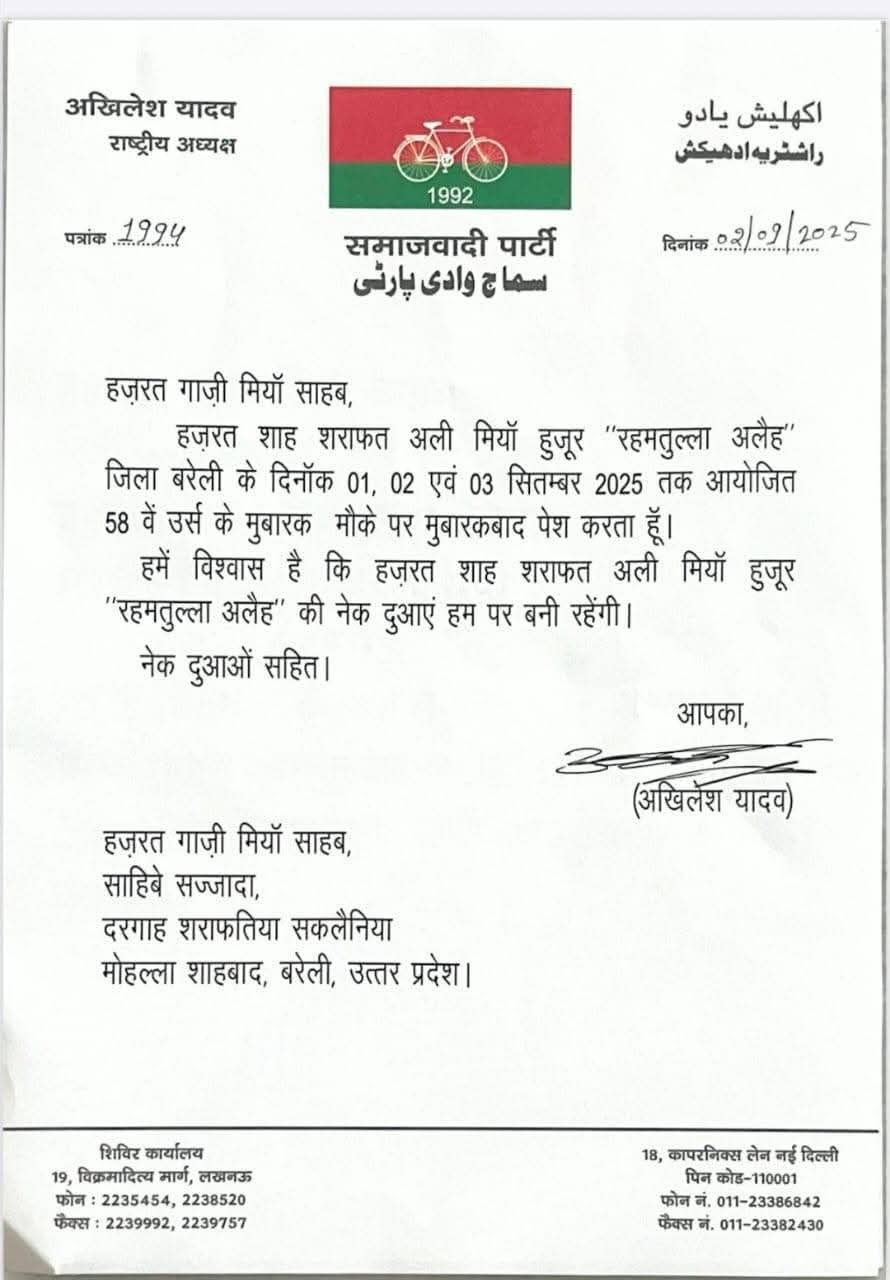 अखिलेश यादव
राष्ट्रीय अध्यक्ष
1992
اکھلیش یادو
راشٹریہ ادھیکش
पत्रांक 1994
समाजवादी पार्टी
سماج وادی پارٹی
दिनांक 02/09/2025
हज़रत गाज़ी मियॉ साहब,
हज़रत शाह शराफत अली मियॉ हुजूर ''रहमतुल्ला अलैह''
जिला बरेली के दिनॉक 01, 02 एवं 03 सितम्बर 2025 तक आयोजित
58 वें उर्स के मुबारक मौके पर मुबारकबाद पेश करता हूॅ।
हमें विश्वास है कि हज़रत शाह शराफत अली मियॉ हुजूर
''रहमतुल्ला अलैह'' की नेक दुआएं हम पर बनी रहेंगी।
नेक दुआओं सहित।
आपका,
(अखिलेश यादव)
हज़रत गाज़ी मियॉ साहब,
साहिबे सज्जादा,
दरगाह शराफतिया सकलैनिया
मोहल्ला शाहबाद, बरेली, उत्तर प्रदेश।
शिविर कार्यालय
19, विक्रमादित्य मार्ग, लखनऊ
फोन : 2235454, 2238520
फैक्स : 2239992, 2239757
18, कापरनिक्स लेन नई दिल्ली
पिन कोड-110001
फोन नं. 011-23386842
फैक्स नं. 011-23382430